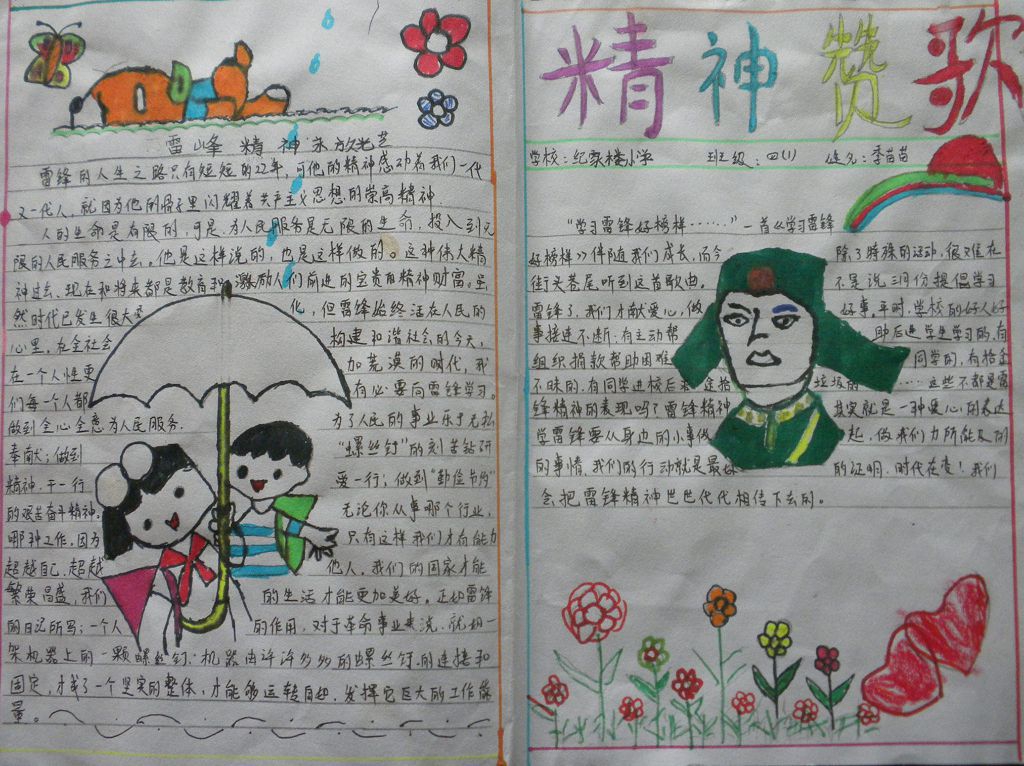 雷峰精神永放光芒
雷锋的人生之路只有短短的22年,可他的精神感动着我们一代
又一代人。就因为他的骨子里闪耀着共产主义思想的崇高精神
人的生命是有限的,可是,为人民服务是无限的生命,投入到无
限的人民服务之中去。他是这样说的,也是这样做的。这种伟大精
神过去、现在和将来都是教育和激励人们前进的宝贵的精神财富。虽
然时代已发生很大变化,但雷锋始终活在人民的
心里。在全社会构建和谐社会的今天,
在一个人性更加荒漠的时代,我
们每一个人都有必要向雷锋学习。
做到全心全意为人民服务.为了人民的事业乐于无私
奉献;做到“螺丝钉”的刻苦钻研
精神,干一行爱一行;做到“勤俭节约”
的艰苦奋斗精神。无论你从事哪个行业,
哪种工作,因为只有这样我们才有能力
超越自己,超越他人。我们的国家才能
繁荣昌盛,我们的生活才能更加美好。正如雷锋
的日记所写:一个人的作用,对于革命事业来说,就如一
架机器上的一颗螺丝钉.机器由许许多多的螺丝钉的连接和
固定,才成了一个坚实的整体,才能够运转自如,发挥它巨大的工作能
量。
精神赞歌
学校:纪家楼小学 班级:四(1) 姓名:李苗苗
“学习雷锋好榜样……”一首《学习雷锋
好榜样》伴随我们成长,而今除了特殊的活动,很难在
街头巷尾听到这首歌曲。不是说三月份提倡学习
雷锋了,我们才献爱心,做好事,平时,学校的好人好
事接连不断:有主动帮助后进学生学习的,有
组织捐款帮助困难同学的,有拾金
不昧的,有同学进校后求连拾垃圾的……这些不都是雷
锋精神的表现吗?雷锋精神其实就是一种爱心的表达
学雷锋要从身边的小事做起,做我们力所能及的
的事情,我们的行动就是最好的证明,时代在变!我们
会把雷锋精神世世代代相传下去的。